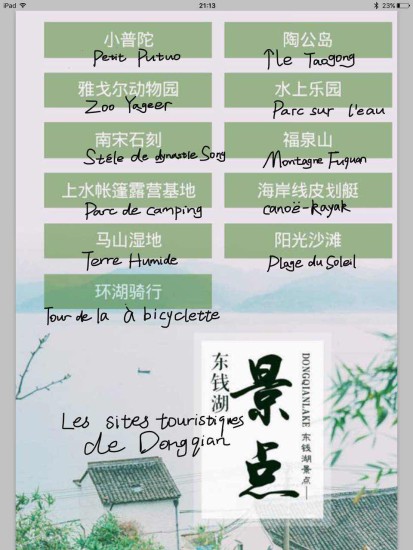 iPad 21:13 23%
小普陀 陶公岛
Petit Putuo Île Taogong
雅戈尔动物园 水上乐园
Zoo Yageer Parc sur l'eau
南宋石刻 福泉山
Stèle de dynastie Song Montagne Fuquan
上水帐篷露营基地 海岸线皮划艇
Parc de camping canoë-kayak
马山湿地 阳光沙滩
Terre Humide Plage du Soleil
环湖骑行
Tour de la à bicyclette
东钱湖
景点
DONGQIANLAKE 东钱湖景点
Les sites touristiques
de Dongqian